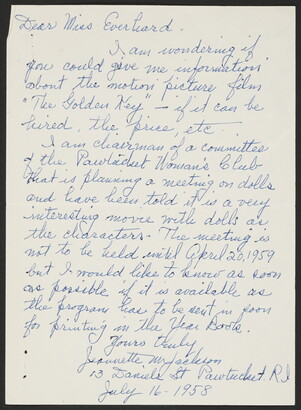 Dear Miss Everhard.
I am wondering if
you could give me information
about the motion picture film
"The Golden Key" – if it can be
hired, the price, etc –
I am chairman of a committee
of the Pawtucket Woman's Club
that is planning a meeting on dolls
and have been told it is a very
interesting movie with dolls as
the characters – The meeting is
not to be held until April 20, 1959
but I would like to know as soon
as possible if it is available as
the program has to be sent in soon
for printing in the Year Book.
Yours truly
Jeannette M. Jackson
13 Daniels St Pawtucket. R.I
July 16 – 1958